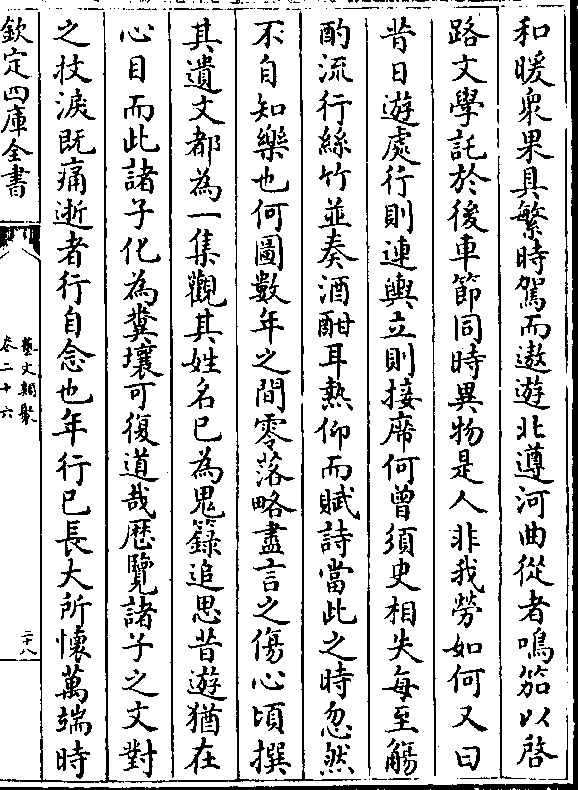 和暖衆果具繁時駕而遨遊北遵河曲從者鳴笳以啓
路文學託於後車節同時異物是人非我勞如何又曰
昔日遊處行則連輿立則接席何曾須臾相失每至觴
酌流行絲竹並奏酒酣耳熱仰而賦詩當此之時忽然
不自知樂也何圖數年之間零落略盡言之傷心頃撰
其遺文都為一集觀其姓名已為鬼籙追思昔遊猶在
心目而此諸子化為糞壤可復道哉歴覽諸子之文對
之抆淚既痛逝者行自念也年行已長大所懷萬端時
欽定四庫全書
藝文類聚
卷二十六
二十八